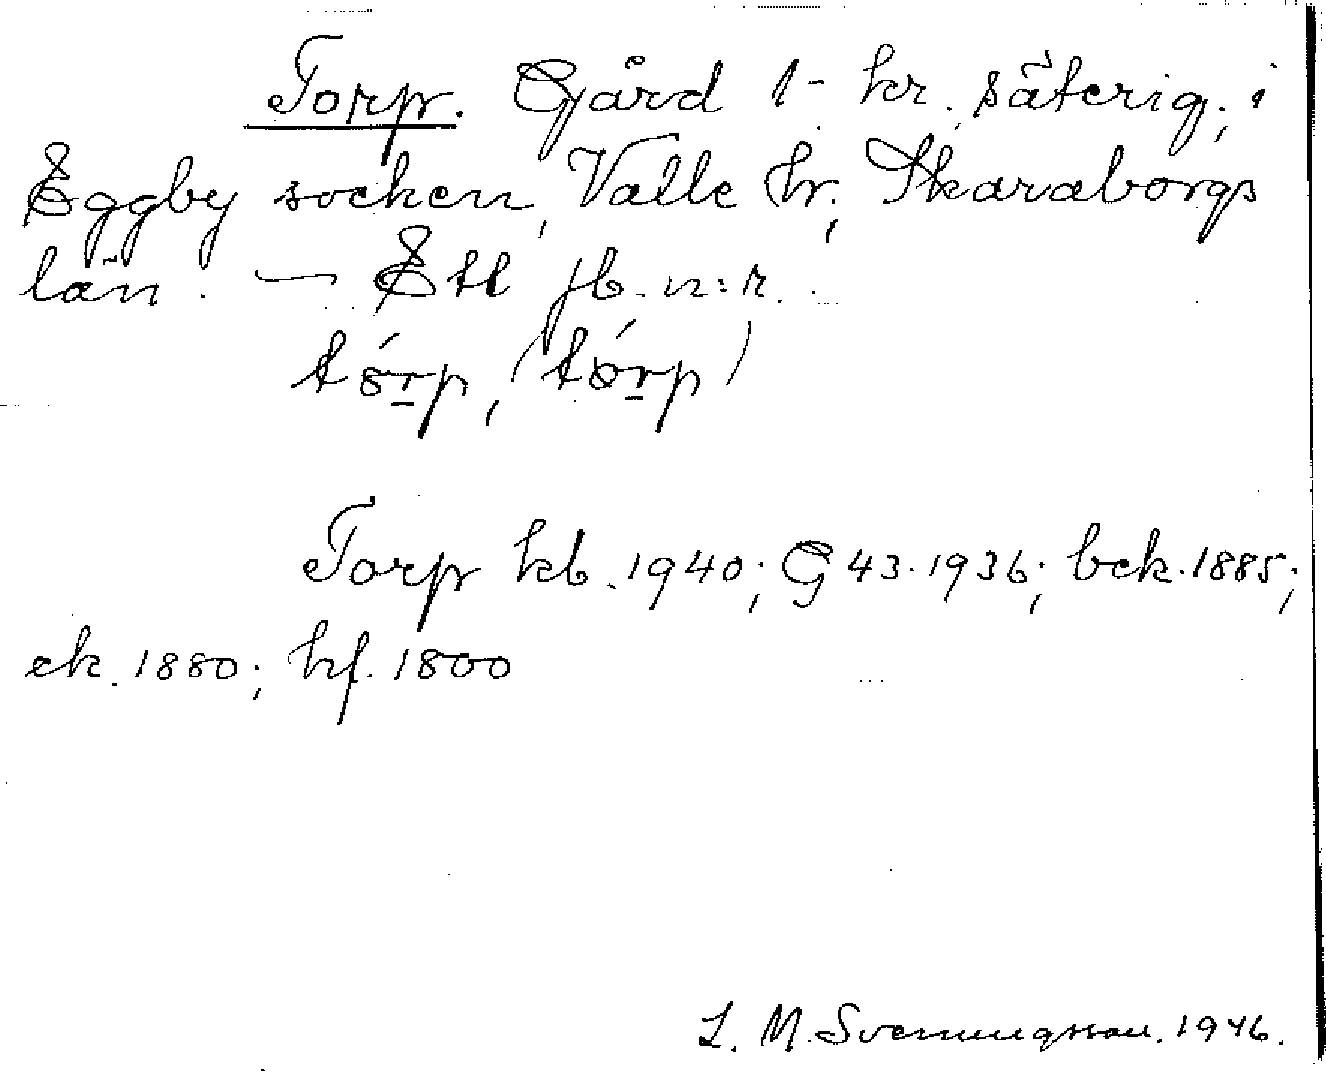 Torp. Gård 1- kr. säterig, i
Eggby socken, Valle hr, Skaraborgs
län. — Ett jb. n:r.
tórp, (tórp)
Torp kb. 1940; G 43. 1936; bek. 1885;
ek. 1880; hf. 1800
L. M. Svenungsson. 1946.